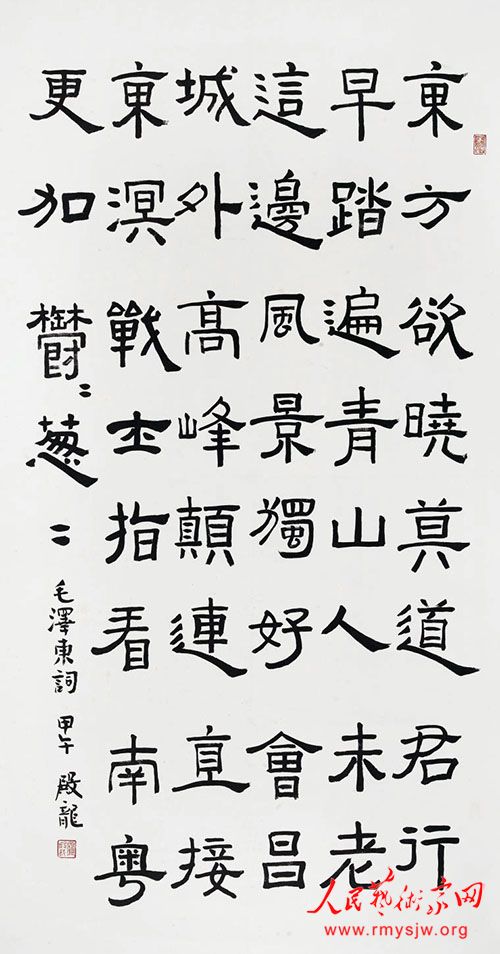 東方欲曉莫道君行
早踏遍青山人未老
這邊風景獨好會昌
城外高峰顛連直接
東溟戰士指看南粵
更加鬱〻葱〻
毛澤東詞 甲午 龍
人民藝術家网
www.rmysjw.org